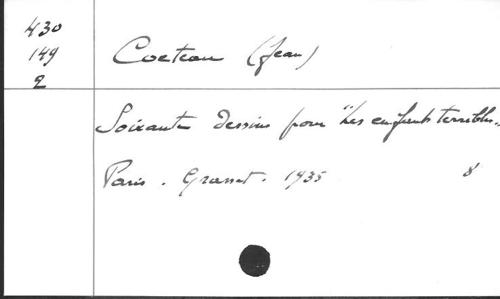 430
149
2
Cocteau (Jean)
Soixante dessins pour "Les enfants terribles"
Paris. Grasset. 1935 8